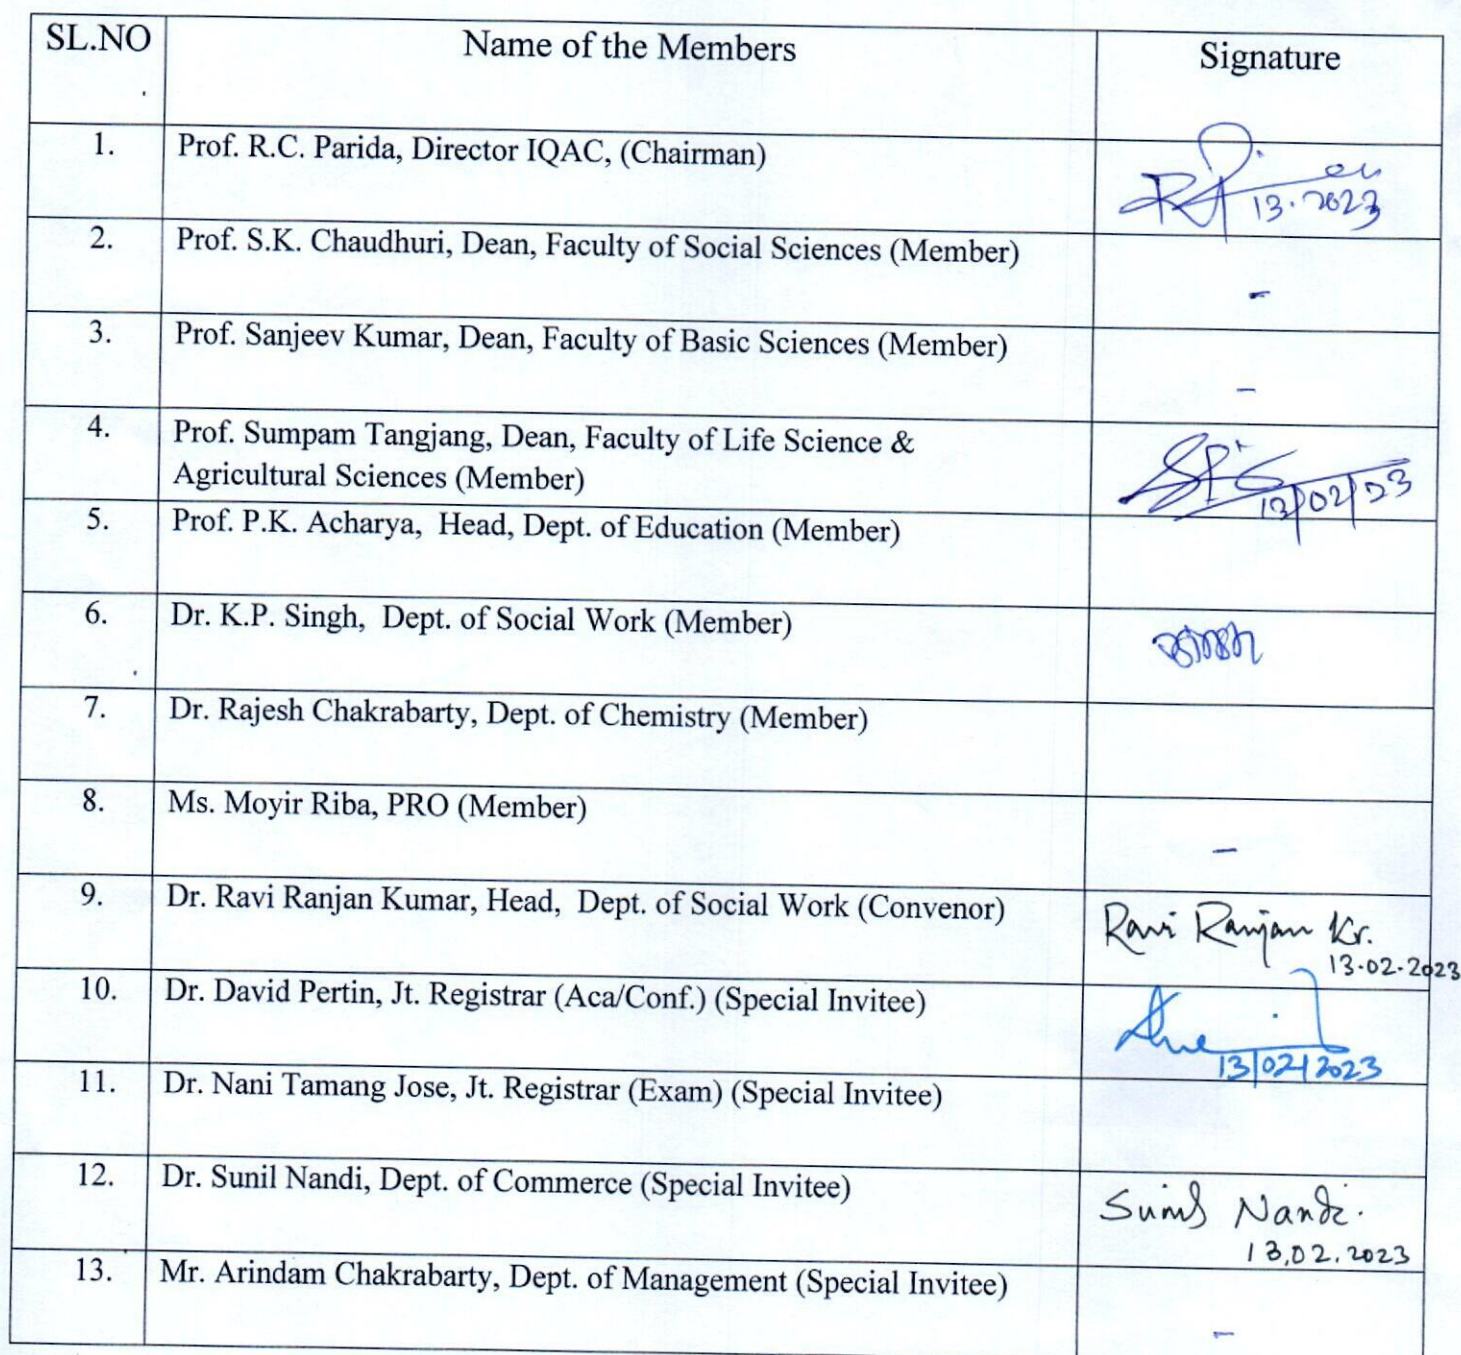 SL.NO Name of the Members Signature
1. Prof. R.C. Parida, Director IQAC, (Chairman)
13.2023
2. Prof. S.K. Chaudhuri, Dean, Faculty of Social Sciences (Member)
-
3. Prof. Sanjeev Kumar, Dean, Faculty of Basic Sciences (Member)
-
4. Prof. Sumpam Tangjang, Dean, Faculty of Life Science &
Agricultural Sciences (Member)
13/02/23
5. Prof. P.K. Acharya, Head, Dept. of Education (Member)
6. Dr. K.P. Singh, Dept. of Social Work (Member)
7. Dr. Rajesh Chakrabarty, Dept. of Chemistry (Member)
8. Ms. Moyir Riba, PRO (Member)
-
9. Dr. Ravi Ranjan Kumar, Head, Dept. of Social Work (Convenor) Ravi Ranjan Kr.
13.02.2023
10. Dr. David Pertin, Jt. Registrar (Aca/Conf.) (Special Invitee)
13/02/2023
11. Dr. Nani Tamang Jose, Jt. Registrar (Exam) (Special Invitee)
12. Dr. Sunil Nandi, Dept. of Commerce (Special Invitee) Sunil Nandi.
13.02.2023
13. Mr. Arindam Chakrabarty, Dept. of Management (Special Invitee)
-